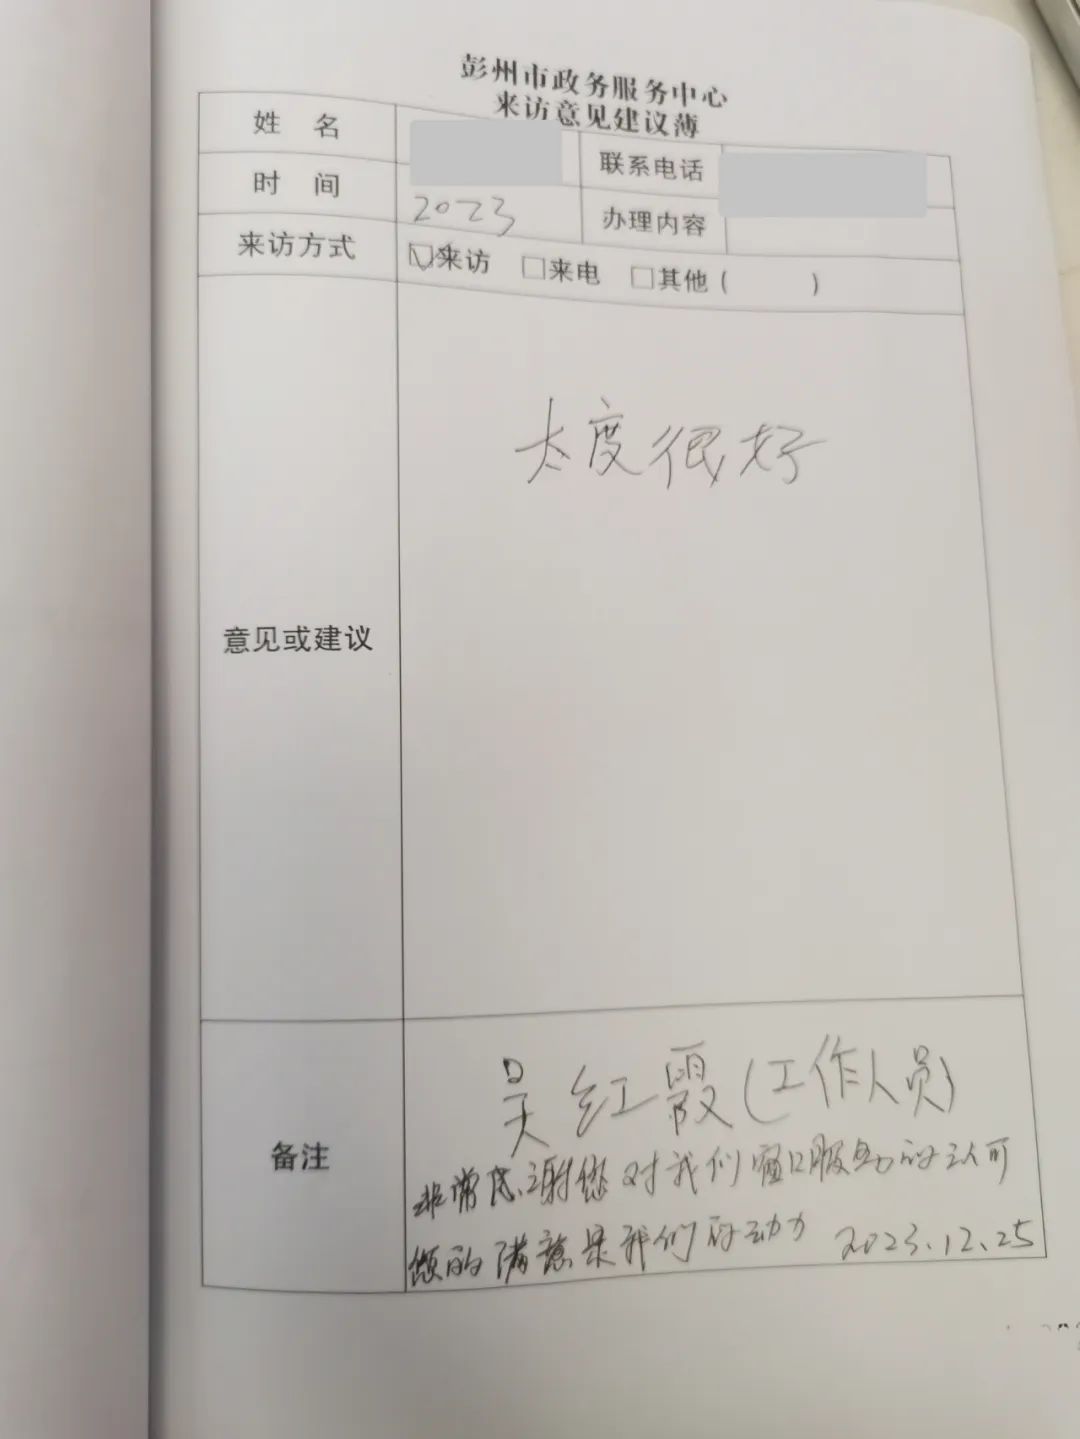 彭州市政务服务中心
来访意见建议薄
姓 名
联系电话
时 间 2023
办理内容
来访方式 ☑来访 □来电 □其他( )
意见或建议
太度很好
备注
吴红霞(工作人员)
非常感谢您对我们窗口服务的认可
您的满意是我们的动力 2023.12.25